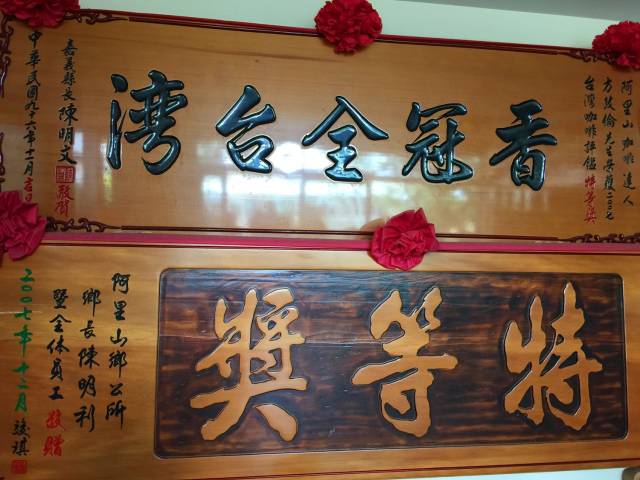 阿里山咖啡達人
方政倫先生榮獲二00七
台灣咖啡評鑑特等獎
香冠全台灣
嘉義縣長陳明文
敬賀
中華民國九十六年十一月吉日
特等獎
阿里山鄉公所
鄉長陳明利
暨全體員工敬贈
二00七年十二月